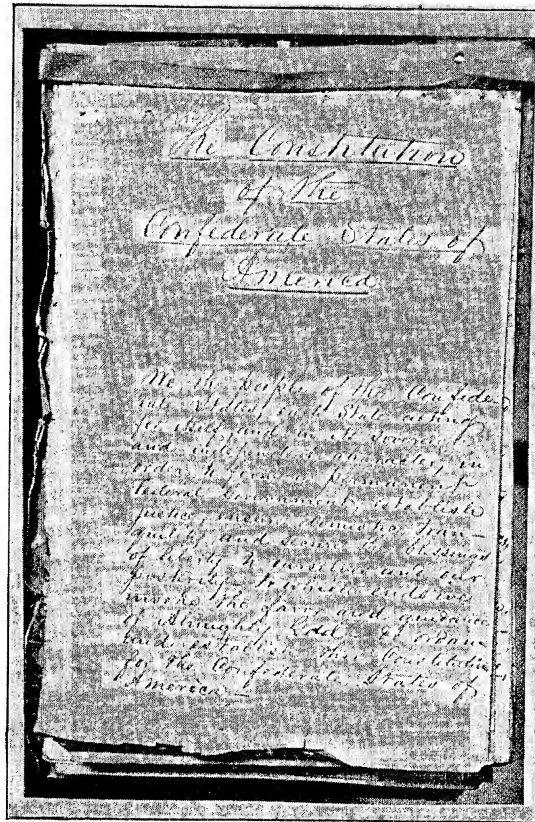 The Constitution
of the
Confederate States of
America
We the People of the Confeder-
ate States, each State acting
for itself, and in its sovereign
and independent character, in
order to form a permanent
Federal Government, establish
justice, insure domestic tran-
quility, and secure the blessings
of liberty to ourselves and our
posterity, to which ends we
invoke the favor and guidance
of Almighty God do ordain
and establish this Constitution
for the Confederate States of
America